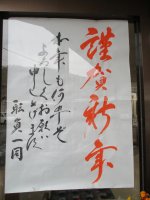 謹賀新年
本年も何卒
よろしくお願い
申し上げます
船員一同